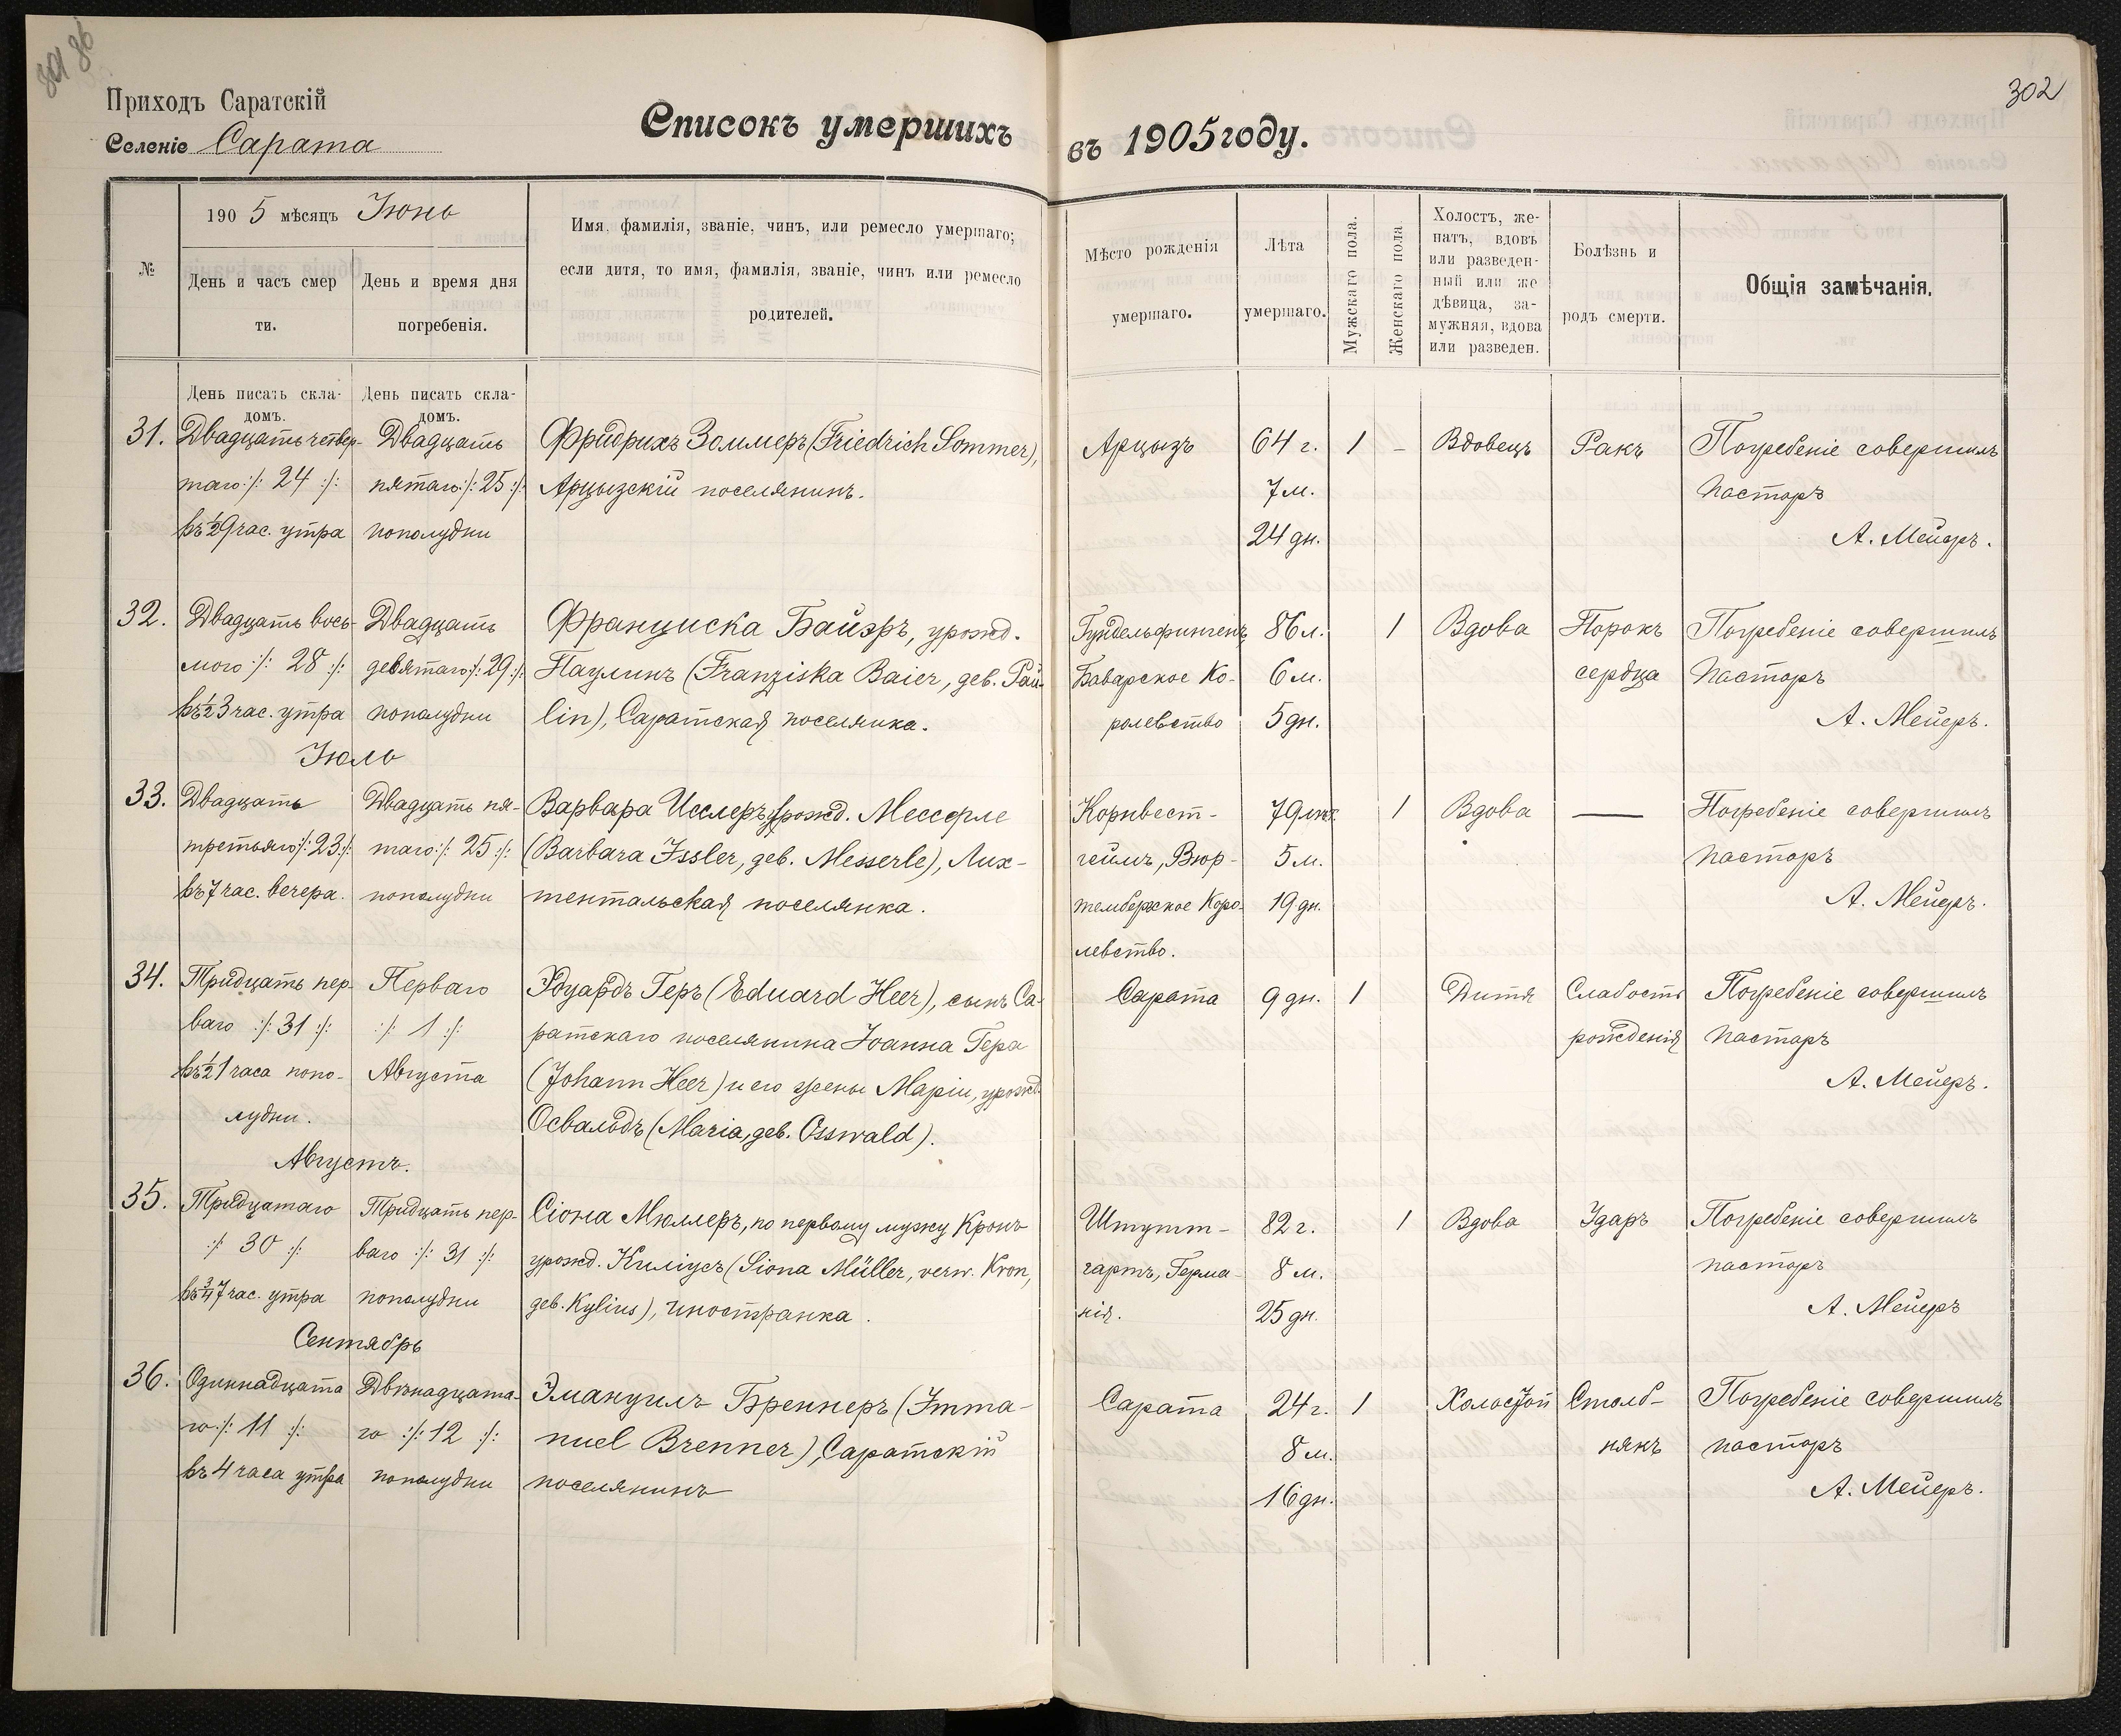 302
Приходъ Саратскій
Селеніе Сарата
Списокъ умершихъ въ 1905 году.
№
1905 мѣсяцъ Іюнь
День и часъ смер
ти.
День и время дня
погребенія.
Имя, фамилія, званіе, чинъ, или ремесло умершаго;
если дитя, то имя, фамилія, званіе, чинъ или ремесло
родителей.
Мѣсто рожденія
умершаго.
Лѣта
умершаго.
Мужскаго пола.
Женскаго пола
Холостъ, же-
натъ, вдовъ
или разведен-
ный или же
дѣвица, за-
мужняя, вдова
или разведен.
Болѣзнь и
родъ смерти.
Общія замѣчанія.
День писать скла-
домъ.
День писать скла-
домъ.
31.
Двадцать четвер-
таго :/: 24 :/:
въ ½9 час. утра
Двадцать
пятаго :/: 25 :/:
пополудни
Фридрихъ Зоммеръ (Friedrich Sommer),
Арцызскій поселянинъ.
Арцызъ
64 г.
7 м.
24 дн.
1
–
Вдовецъ
Ракъ
Погребеніе совершилъ
пасторъ
А. Мейеръ.
32.
Двадцать вось-
мого :/: 28 :/:
въ ½3 час. утра
Двадцать
девятаго :/: 29 :/:
пополудни
Франциска Байэръ, урожд.
Паулинъ (Franziska Baier, geb. Pau-
lin), Саратская поселянка.
Гундельфингенъ
Баварское Ко-
ролевство
86 л.
6 м.
5 дн.
1
Вдова
Порокъ
сердца
Погребеніе совершилъ
пасторъ
А. Мейеръ.
Іюль
33.
Двадцать
третьяго :/: 23 :/:
въ 7 час. вечера.
Двадцать пя-
таго :/: 25 :/:
пополудни
Варвара Исслеръ, урожд. Мессерле
(Barbara Issler, geb. Messerle), Лих-
тентальская поселянка.
Корнвест-
геймъ, Вюр-
тембергское Коро-
левство.
79 лѣт
5 м.
19 дн.
1
Вдова
—
Погребеніе совершилъ
пасторъ
А. Мейеръ.
34.
Тридцать пер-
ваго :/: 31 :/:
въ ½1 часа попо-
лудни.
Перваго
:/: 1 :/:
Августа
Эдуардъ Геръ (Eduard Heer), сынъ Са-
ратскаго поселянина Іоанна Гера
(Johann Heer) и его жены Маріи, урожд.
Освальдъ (Maria, geb. Osswald).
Сарата
9 дн.
1
Дитя
Слабость
рожденія
Погребеніе совершилъ
пасторъ
А. Мейеръ.
Августъ.
35.
Тридцатаго
:/: 30 :/:
въ ¾7 час. утра
Тридцать пер-
ваго :/: 31 :/:
пополудни
Сіона Мюллеръ, по первому мужу Кронъ
урожд. Киліусъ (Siona Müller, verw. Kron,
geb. Kylius), иностранка.
Штутт-
гартъ, Герма-
нія.
82 г.
8 м.
25 дн.
1
Вдова
Ударъ
Погребеніе совершилъ
пасторъ
А. Мейеръ
Сентябрь
36.
Одиннадцата
го :/: 11 :/:
въ 4 часа утра
Двѣнадцата-
го :/: 12 :/:
пополудни
Эмануилъ Бреннеръ (Imma-
nuel Brenner), Саратскій
поселянинъ
Сарата
24 г.
8 м.
16 дн.
1
Холостой
Столб-
някъ
Погребеніе совершилъ
пасторъ
А. Мейеръ.